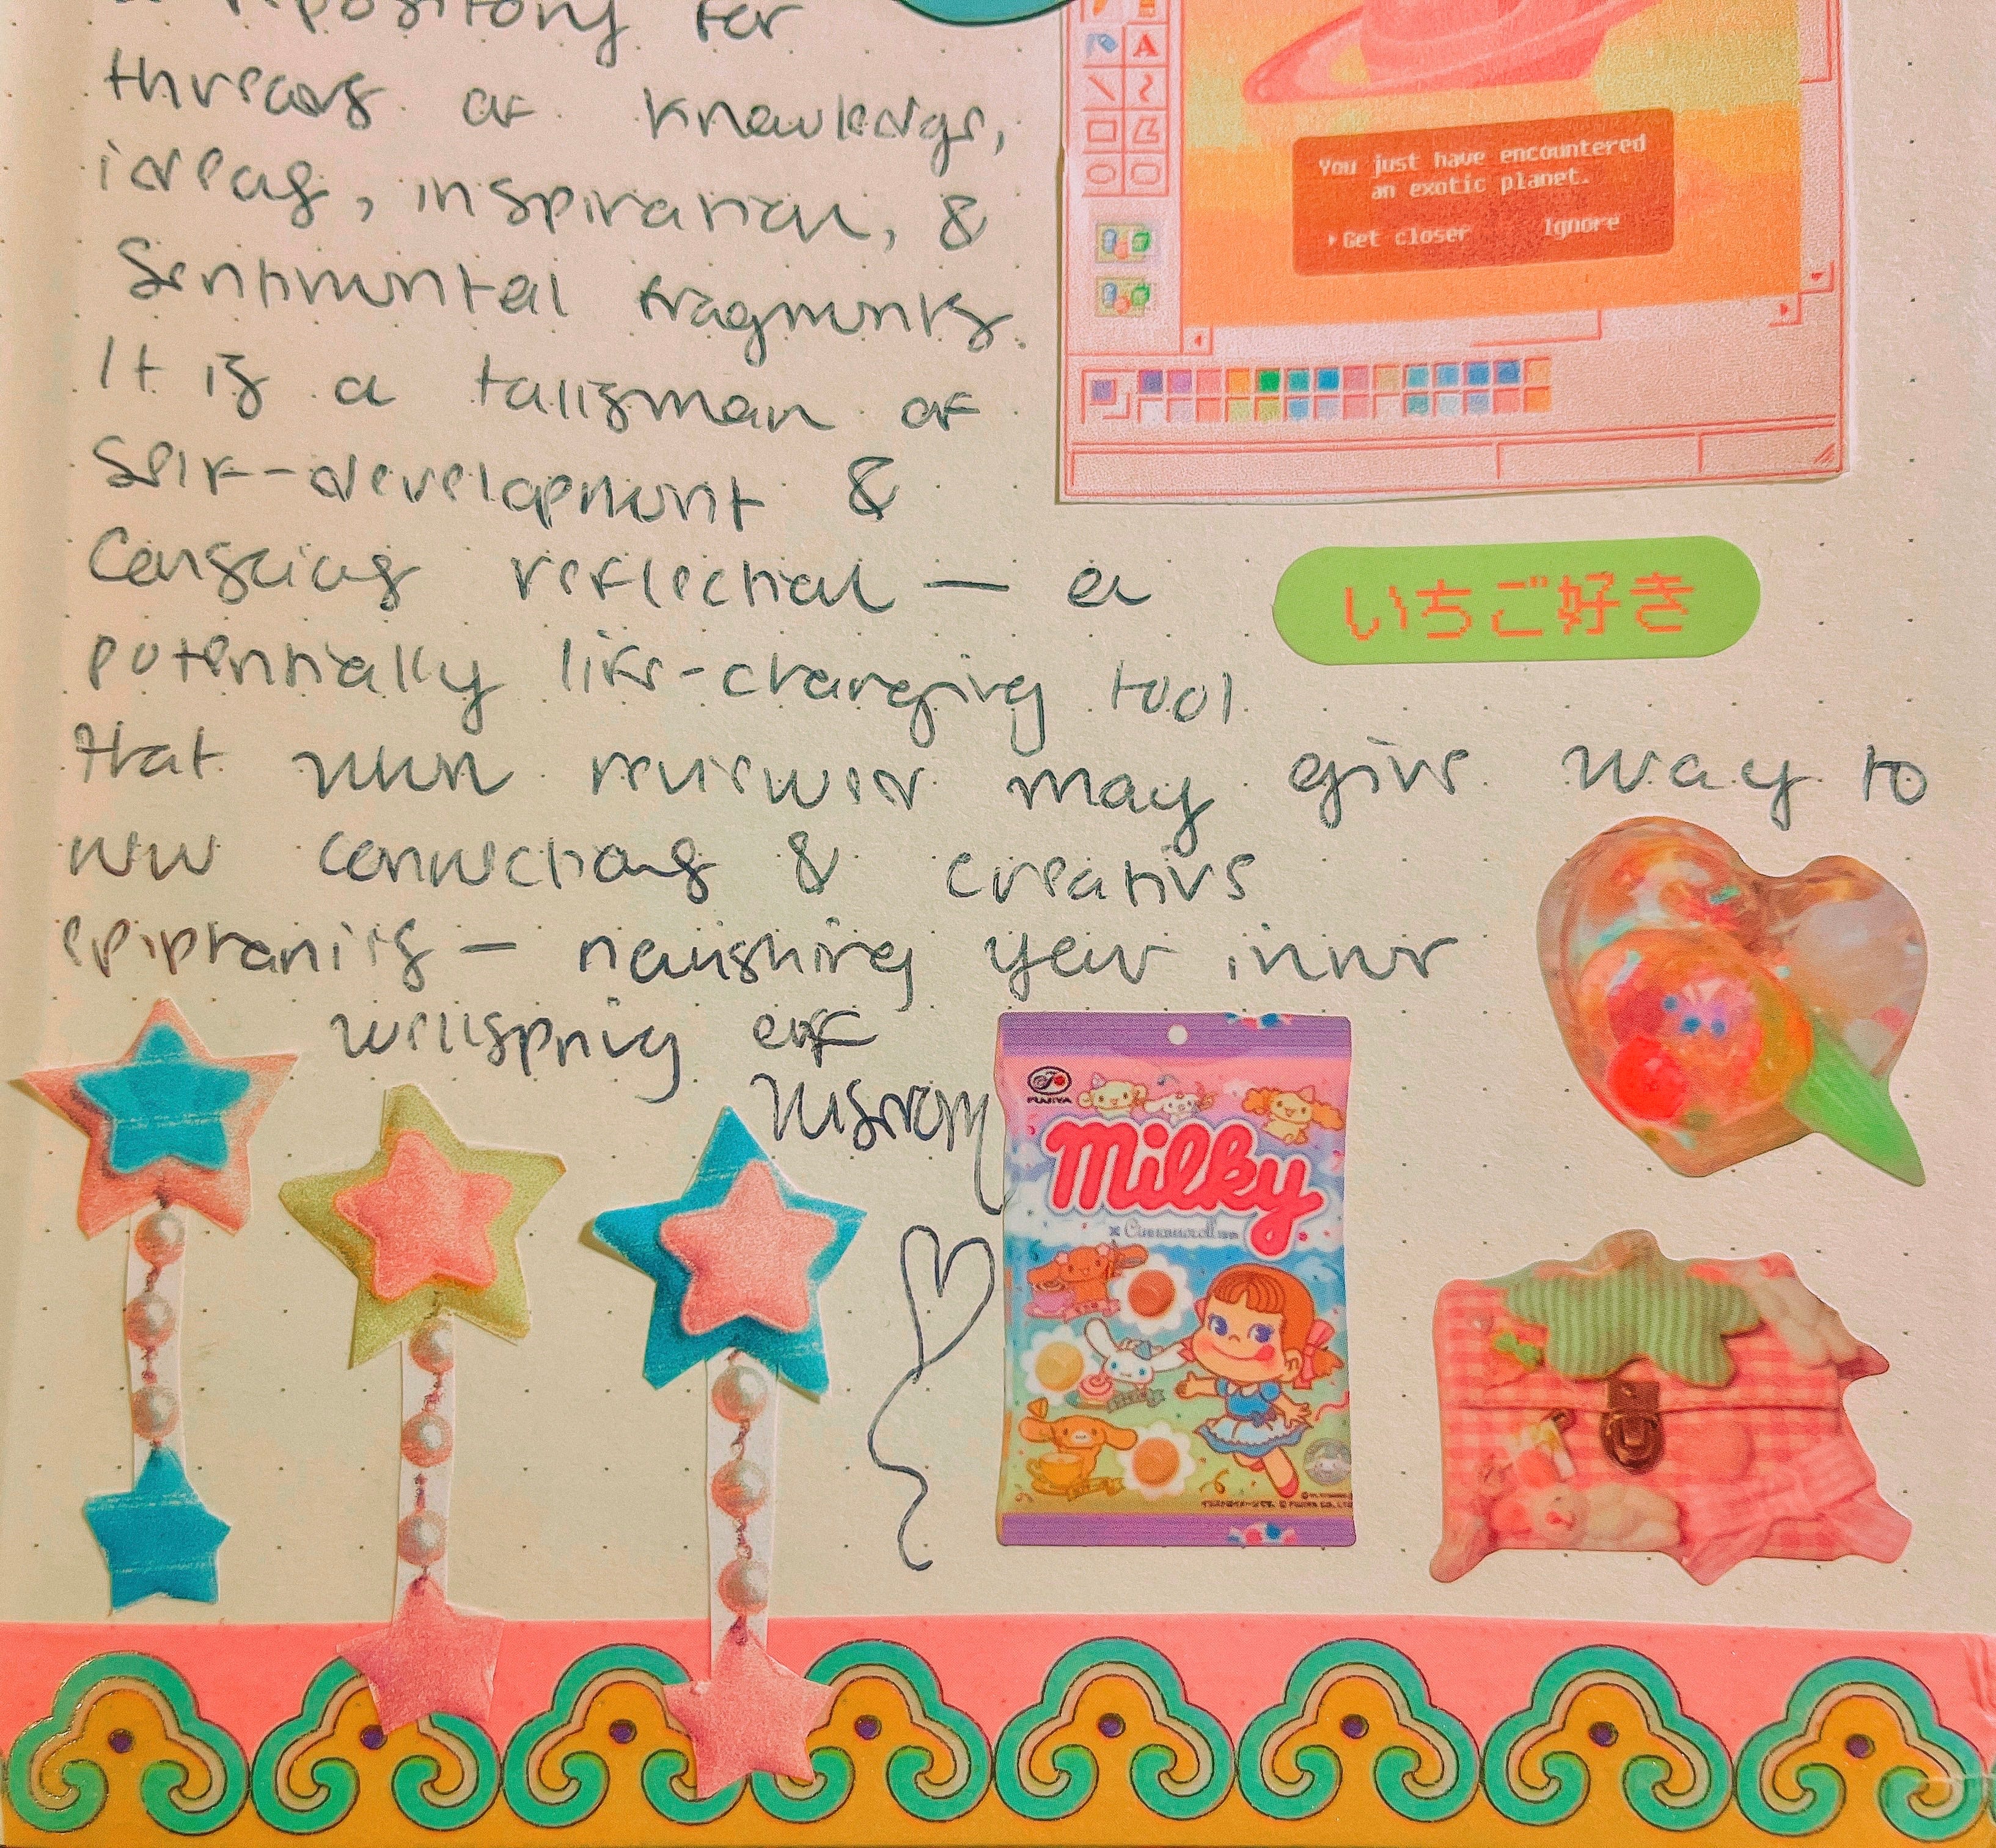 a repository for
threads of knowledge,
ideas, inspiration, &
sentimental fragments.
It is a talisman of
self-development &
conscious reflection — a
potentially life-changing tool
that when reviewed may give way to
new connections & creative
epiphanies — nourishing your inner
wellspring of
wisdom
A
You just have encountered
an exotic planet.
Get closer Ignore
いちご好き
FUJIYA
Milky
× Cinnamoroll